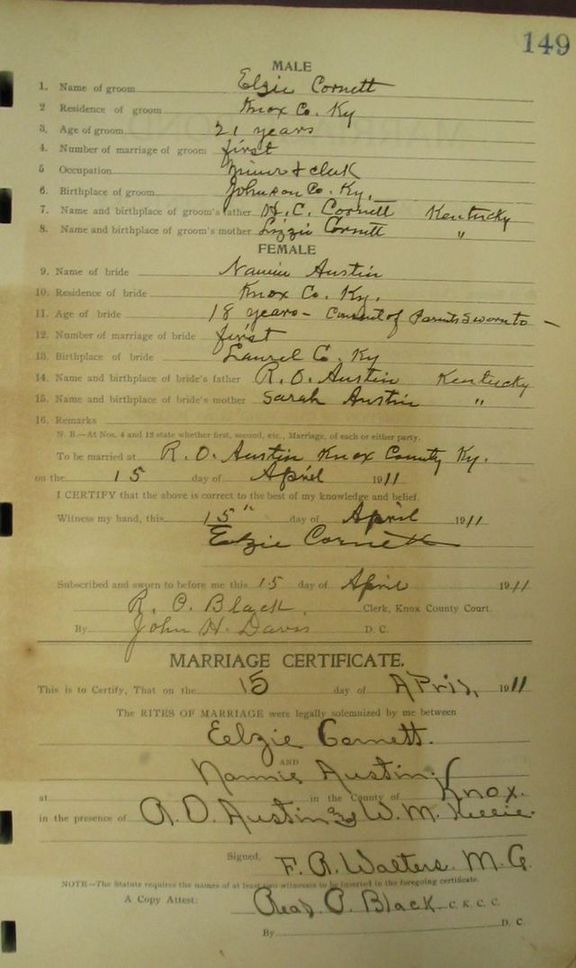 149
MALE
1. Name of groom Elzie Cornett
2 Residence of groom Knox Co. Ky
3. Age of groom 21 years
4. Number of marriage of groom first
5 Occupation Miner & clerk
6. Birthplace of groom Johnson Co. Ky.
7. Name and birthplace of groom's father H. C. Cornett Kentucky
8. Name and birthplace of groom's mother Lizzie Cornett "
FEMALE
9. Name of bride Nannie Austin
10. Residence of bride Knox Co. Ky.
11. Age of bride 18 years - Consent of Parents sworn to -
12. Number of marriage of bride first
13. Birthplace of bride Laurel C. Ky
14. Name and birthplace of bride's father R. O. Austin Kentucky
15. Name and birthplace of bride's mother Sarah Austin "
16. Remarks
N. B.—At Nos. 4 and 12 state whether first, second, etc., Marriage, of each or either party.
To be married at R. O. Austin Knox County Ky.
on the 15 day of April 1911
I CERTIFY that the above is correct to the best of my knowledge and belief.
Witness my hand, this 15" day of April 1911
Elzie Cornett
Subscribed and sworn to before me this 15 day of April 1911
R. O. Black, Clerk, Knox County Court.
By John H. Davis D. C.
MARRIAGE CERTIFICATE.
This is to Certify, That on the 15 day of April, 1911
The RITES OF MARRIAGE were legally solemnized by me between
Eelzie Cornett.
AND
Nannie Austin
at in the County of Knox.
in the presence of R. O. Austin W. M.
Signed, F. R. Walters. M. G.
NOTE—The Statute requires the names of at least two witnesses to be inserted in the foregoing certificate.
A Copy Attest: Black C. K. C. C.
By D. C.